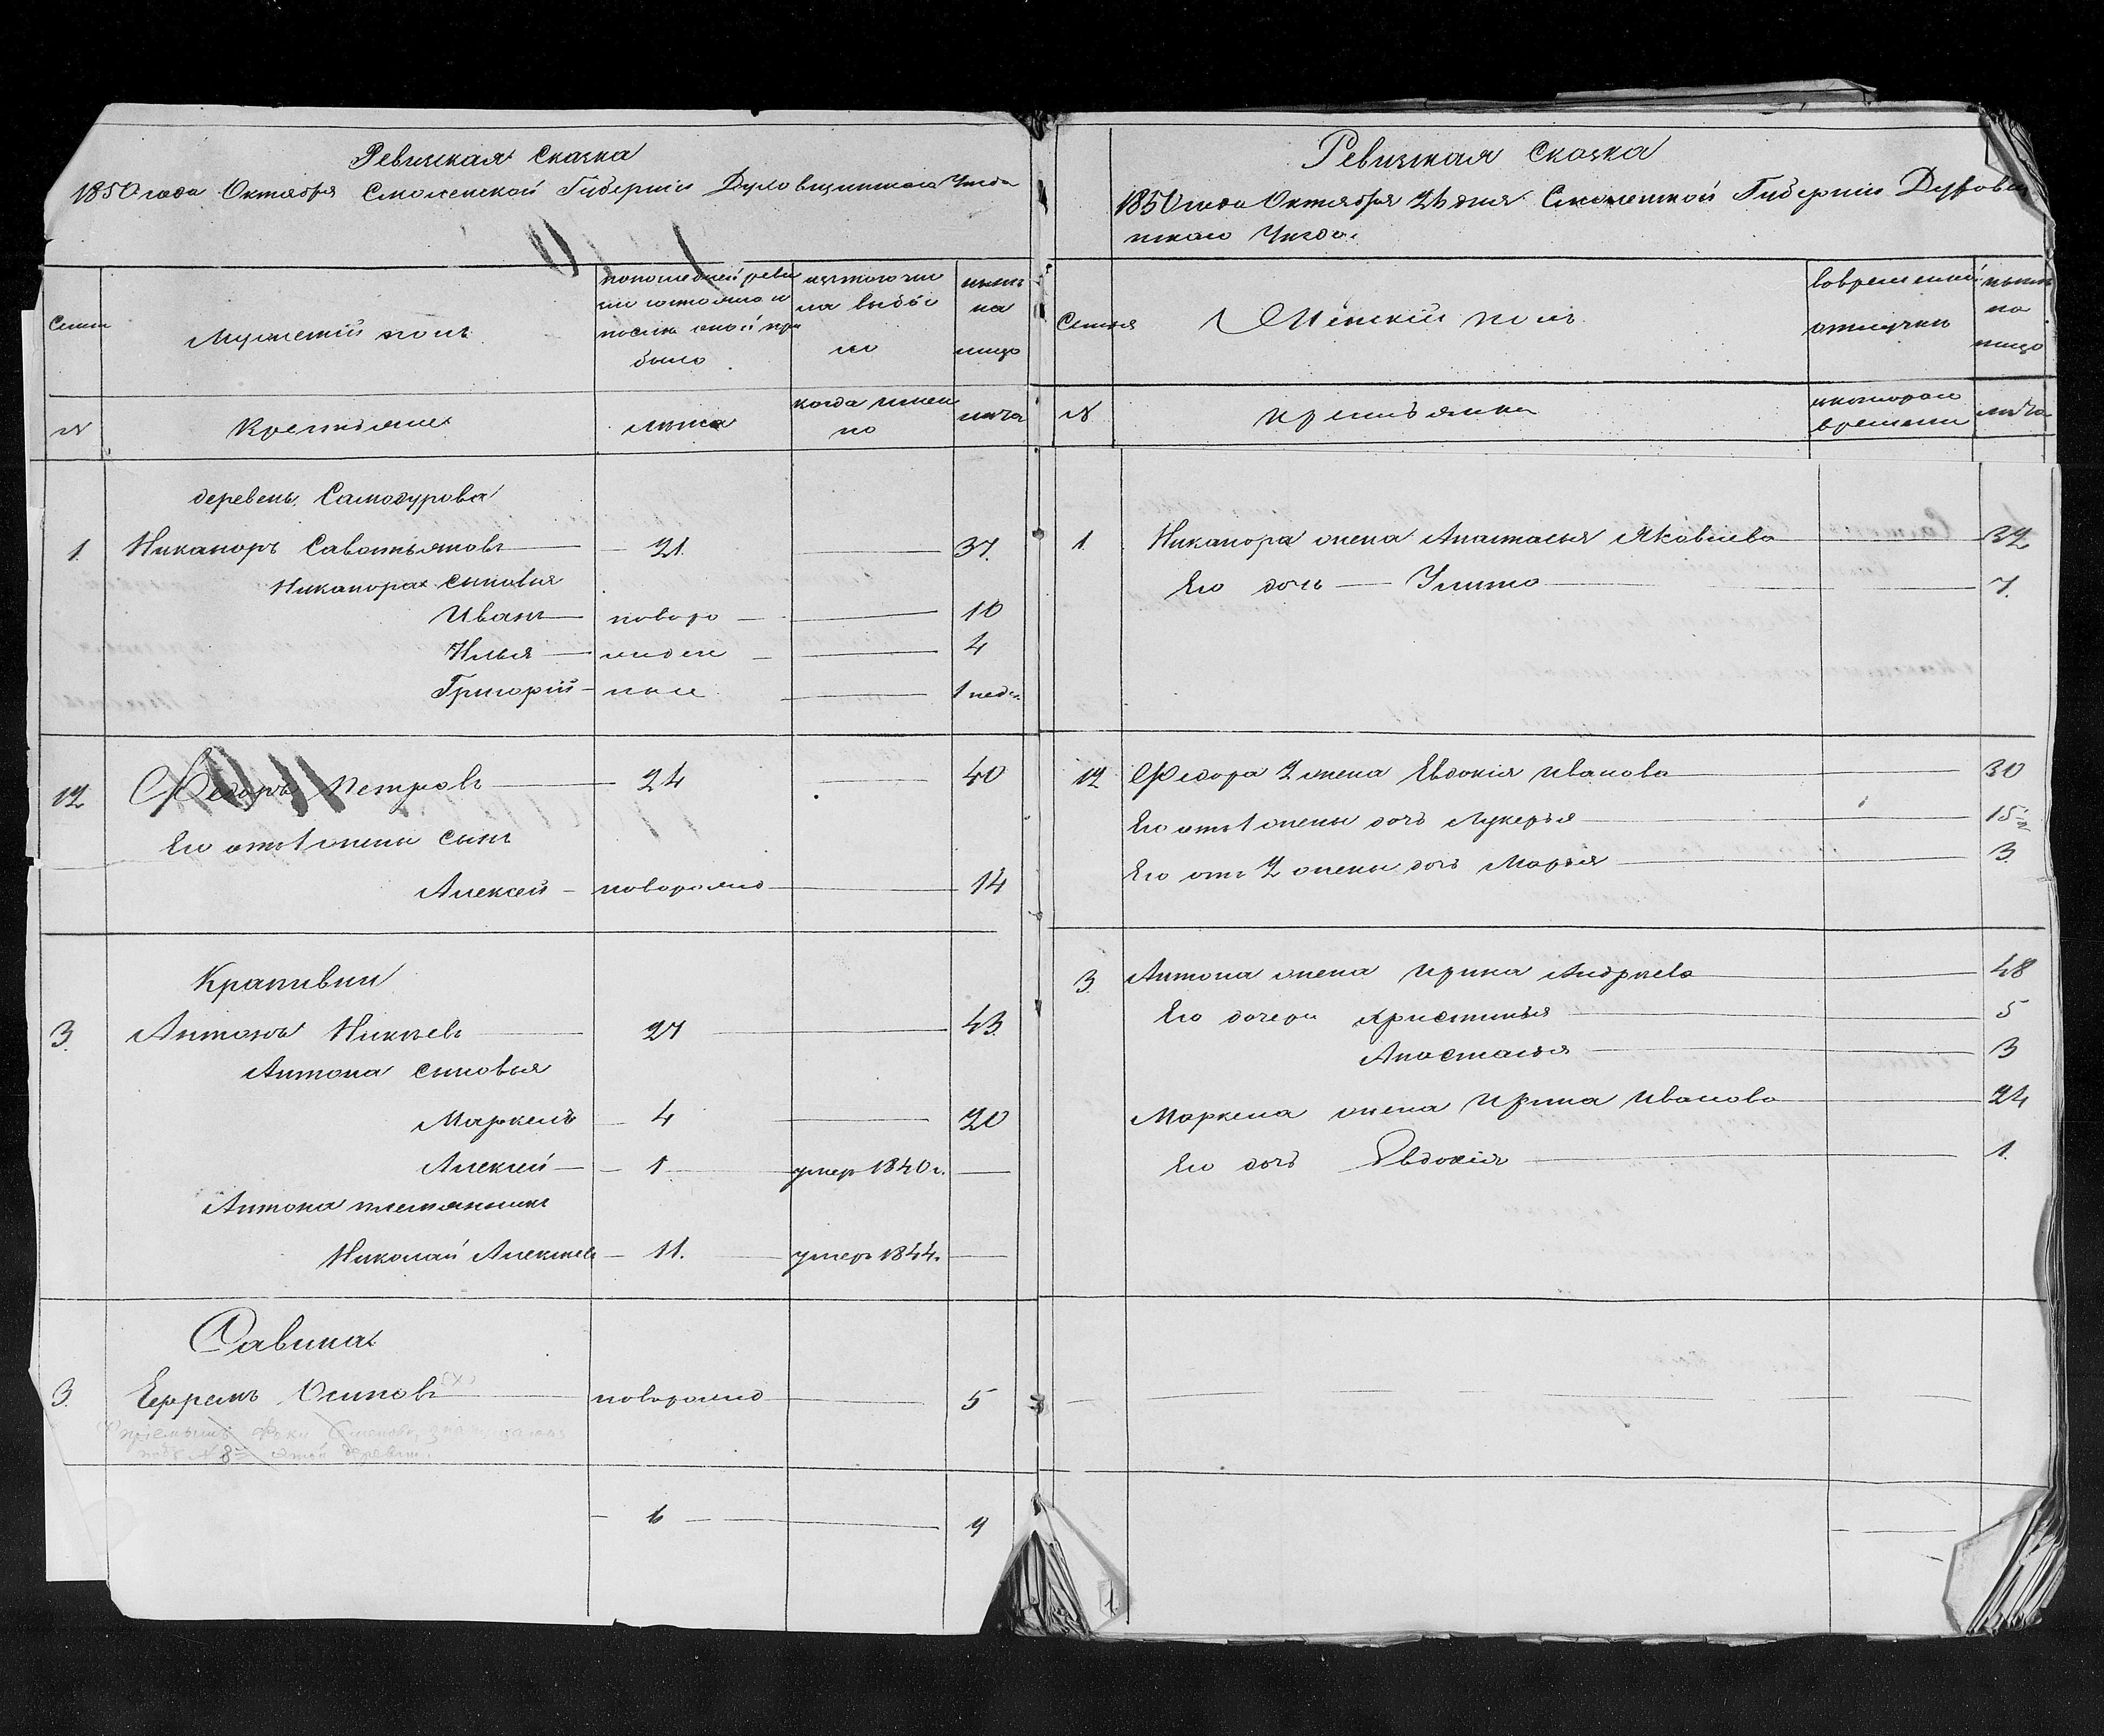 Ревизская сказка
1850 года Октября Смоленской Губернiи Духовщинскаго Уезда
Семьи
Мужескiй полъ
по последней реви
зiи состояло и
после оной при
было
изъ того чис
ла выбы
ло
ныне
на
лицо
№
Крестьяне
лета
когда имен
но
лета
деревень Самодурова
1. Никаноръ Савостьяновъ 21. 37.
Никанора сыновья
Иванъ новоро 10
Илья жден 4
Григорiй ные 1 нед.
12 Федоръ Петровъ 24 40
Его отъ 1 жены сынъ
Алексей новорожд 14
Крапивни
3. Антонъ Никеевъ 27 43.
Антона сыновья
Маркелъ 4 20
Алексей 1 умер 1840 г.
Антона племянникъ
Николай Алексеев 11. умеръ 1844.
Савина
3. Ефремъ Осиповъ (х) новорожд 5
подъ № 8 этой деревни.
6 9
Ревизская сказка
1850 года Октября 26 дня Смоленской Губернiи Духовщи
нскаго Уезда.
Семья
Женскiй полъ
во временной
отлучке
ныне
на
лицо
№
крестьянки
с котораго
времени
лета
1. Никанора жена Анастасья Яковлева 32
Его дочь Улита 7.
12 Федора 2 жена Евдокiя Иванова 30
Его отъ 1 жены дочь Лукерья 15
Его отъ 2 жены дочь Марья 3.
3. Антона жена Ирина Андреева 48
Его дочери Христинья 5
Анастасья 3
Маркела жена Ирина Иванова 24
Его дочь Евдокiя 1.
1.